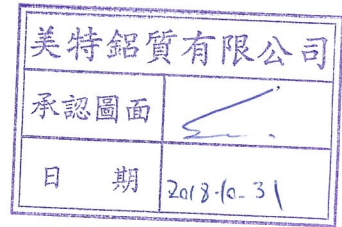 美特鋁質有限公司
承認圖面
日 期 2018-10-31